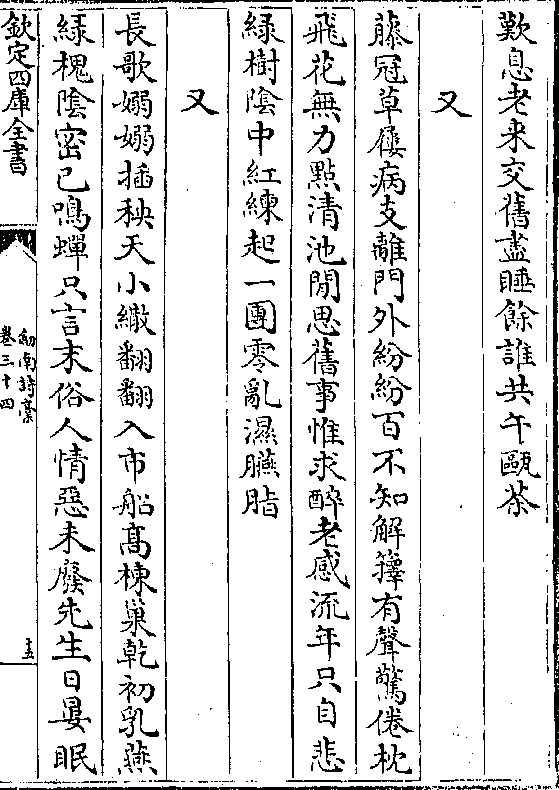 歎息老来交舊盡睡餘誰共午甌茶
又
藤冠草屨病支離門外紛紛百不知解籜有聲驚倦枕
飛花無力點清池閒思舊事惟求醉老感流年只自悲
緑樹陰中紅練起一團零亂濕臙脂
又
長歌嫋嫋插秧天小繖翻翻入市船髙棟巢乾初乳燕
緑槐陰密已鳴蟬只言末俗人情惡未廢先生日晏眠
欽定四庫全書
劔南詩藁
卷三十四
十五